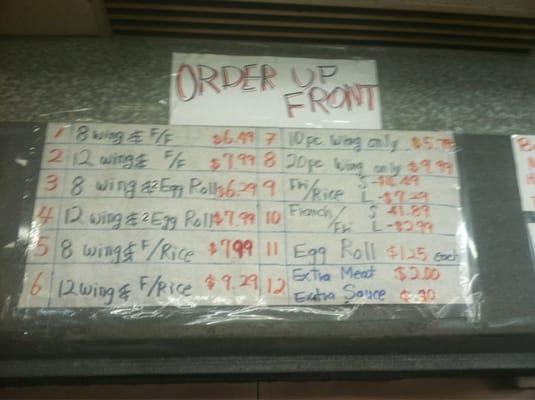 ORDER UP
FRONT
1 8 wing & F/F $6.49
2 12 wing & F/F $7.99
3 8 wing & 2 Egg Roll $6.29
4 12 wing & 2 Egg Roll $7.99
5 8 wing & F/Rice $7.99
6 12 wing & F/Rice $9.29
7 10 pc wing only $5.79
8 20 pc wing only $9.99
9 Fri/Rice S -
L -$7.29
10 Franch/Fri S -$1.89
L -$2.99
11 Egg Roll $1.25 each
12 Extra Meat $2.00
Extra Sauce $.30